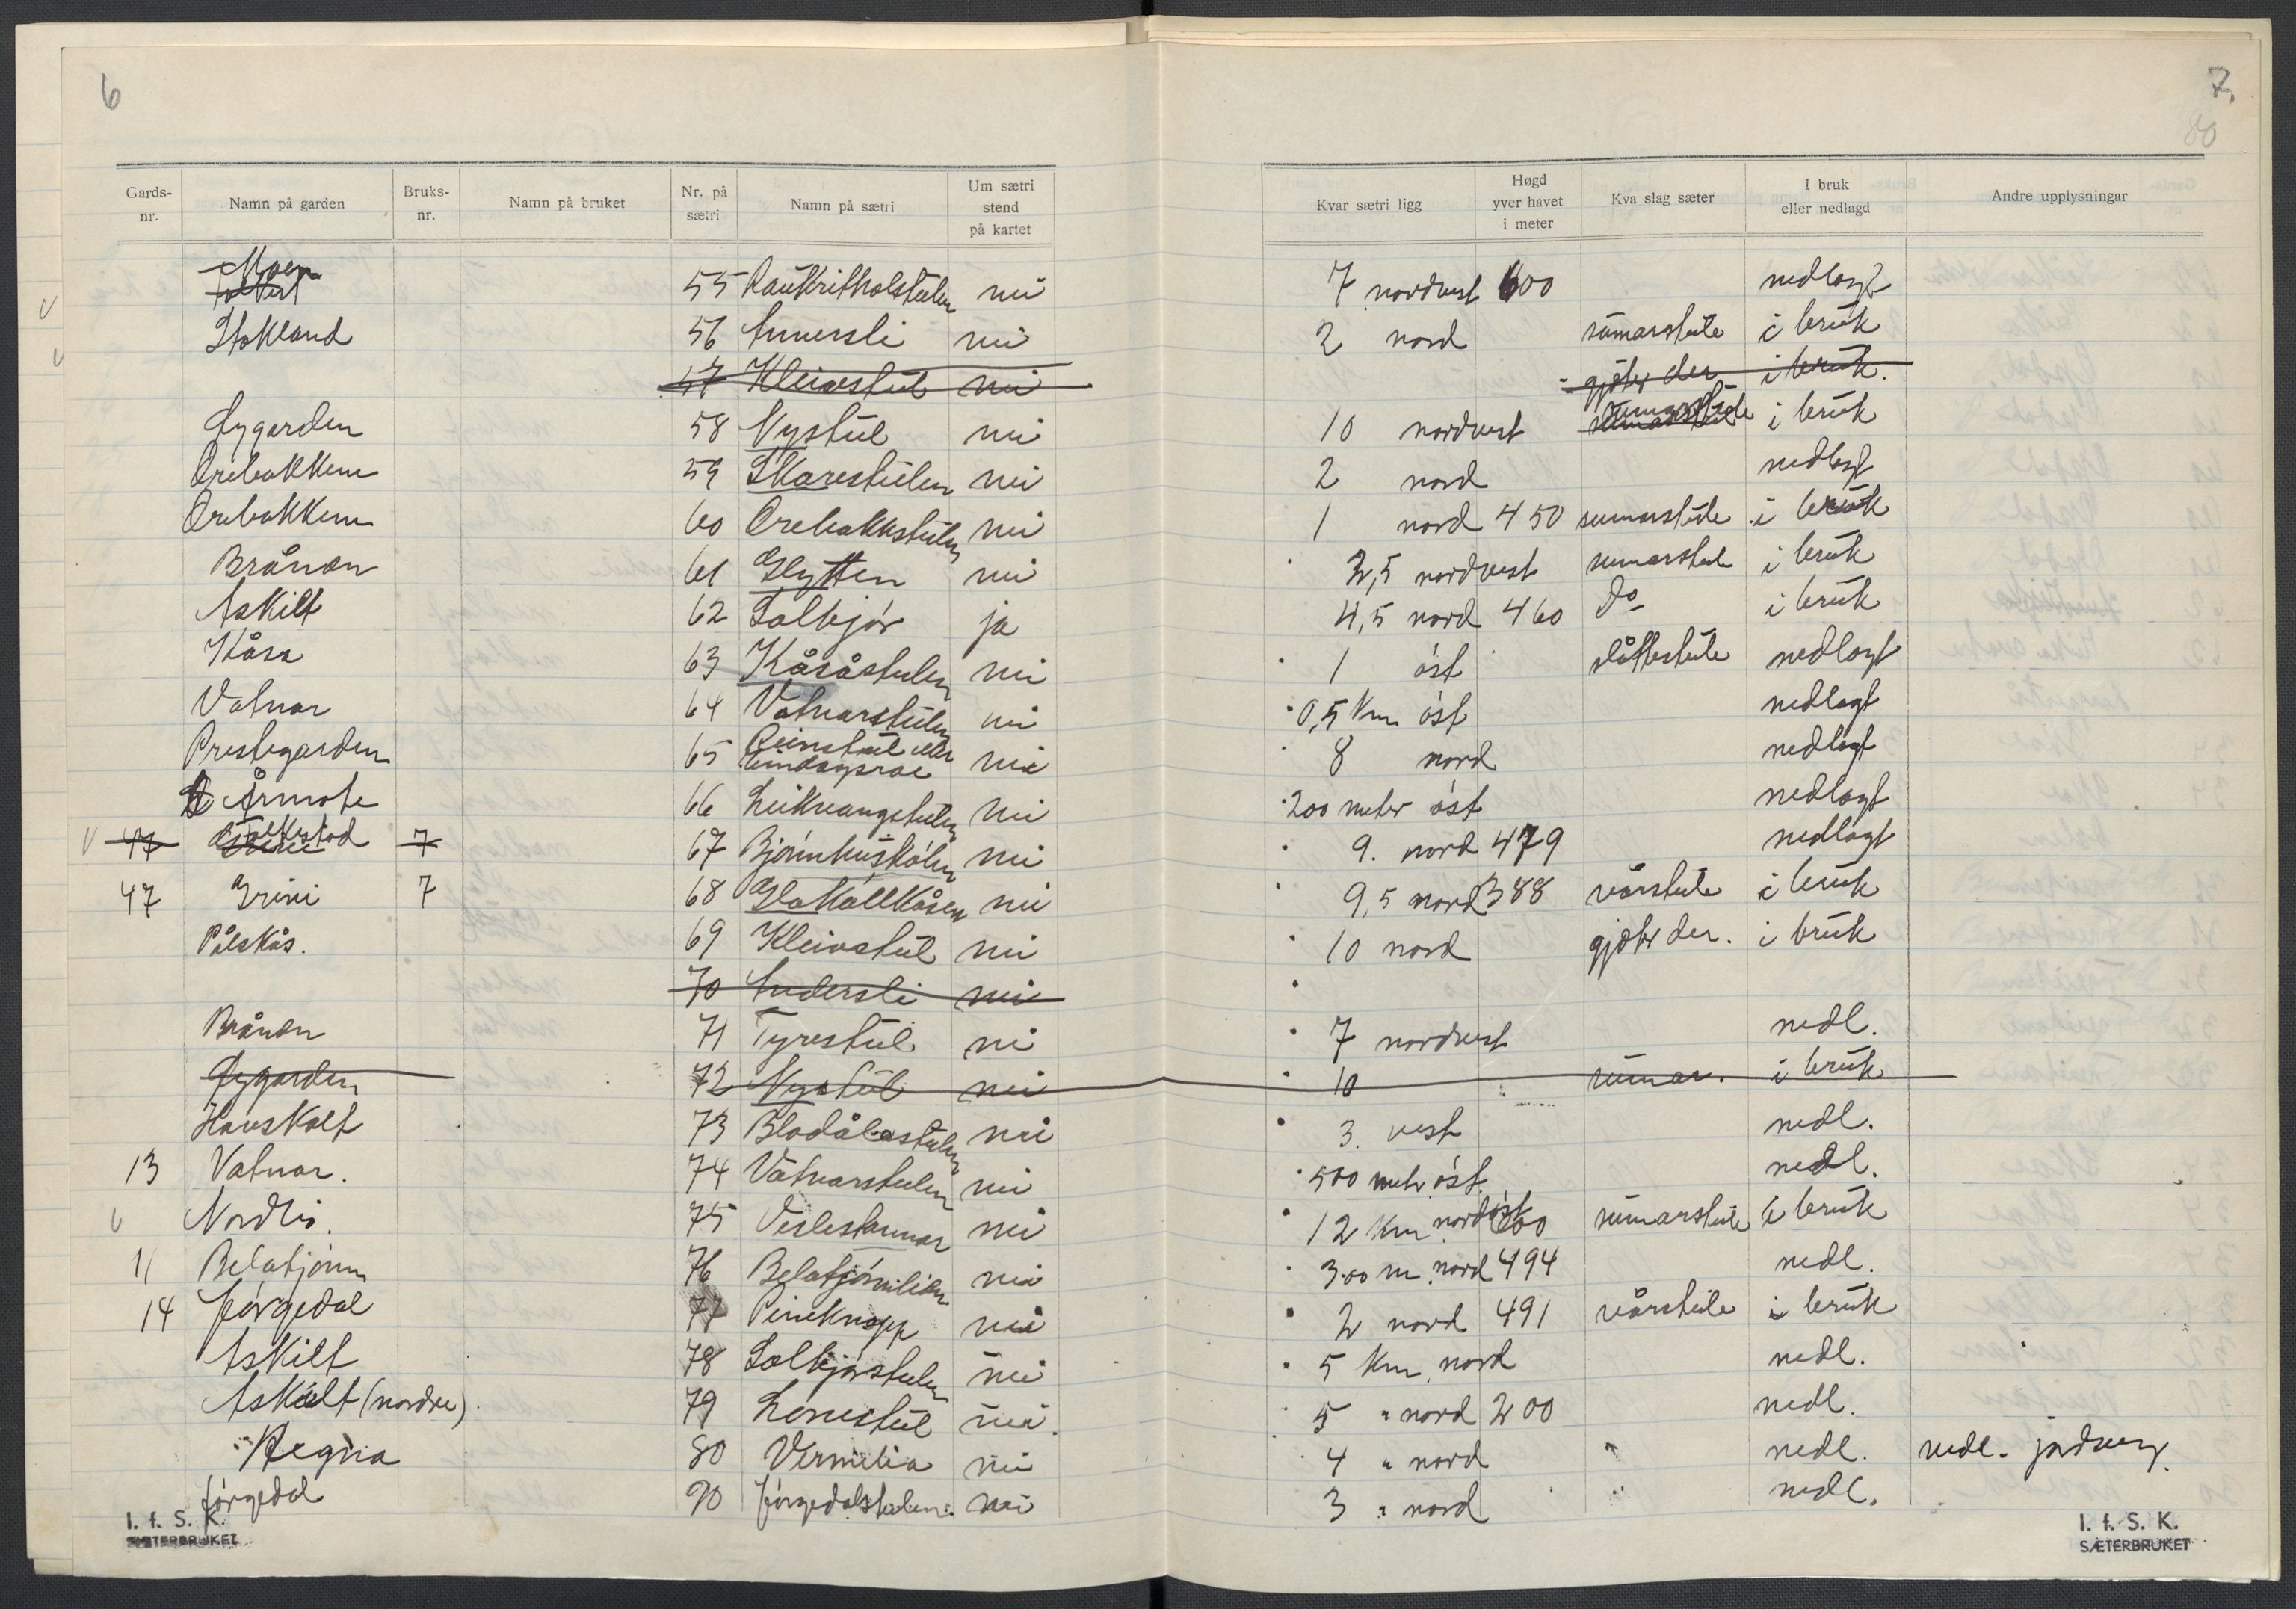 6
7.
80
Gards-nr. Namn på garden Bruks-nr. Namn på bruket Nr. på sætri Namn på sætri Um sætri stend på kartet Kvar sætri ligg Høgd yver havet i meter Kva slag sæter I bruk eller nedlagd Andre upplysningar
Moen 55 nei 7 nordvest 600 nedlagt
Stokland 56 Annersli nei 2 nord sumarstule i bruk
57 Kleivstul nei gjöter der i bruk.
Øygarden 58 Nystul nei 10 nordvest sumarstule i bruk
Orebakken 59 Skarestulen nei 2 nord nedlagt
Orebakken 60 Orebakkstulen nei 1 nord 450 sumarstule i bruk
Brånan 61 Glytten nei 2,5 nordvest sumarstule i bruk
Askilt 62 Solbjør ja 4,5 nord 460 Do i bruk
Kåsa 63 Kåsåstulen nei 1 öst slåttestule nedlagt
Vatnar 64 Vatnarstulen nei 0,5 Km öst nedlagt
Prestegarden 65 Reinstul eller nei 8 nord nedlagt
Årmote 66 Leikvangstulen nei 200 meter öst nedlagt
47 Folkestad 7 67 nei 9. nord 479 nedlagt
47 Grini 7 68 nei 9,5 nord 388 vårstule i bruk
Pålskås. 69 Kleivstul nei 10 nord gjöter der. i bruk
70 Andersli nei
Brånan 71 Tyrestul nei 7 nordvest nedl.
Øygarden 72 Nystul nei 10 sumar. i bruk
Hauskolt 73 nei 3. vest nedl.
13 Vatnar. 74 Vatnarstulen nei 500 meter öst. nedl.
Nordli. 75 Veslestannar nei 12 Km nordöst 600 sumarstule i bruk
11 Belatjönn 76 Belatjönnlien nei 300 m. nord 494 nedl.
14 Jörgedal 77 Pineknapp nei 2 nord 491 vårstule i bruk
Askilt 78 Solbjørstulen nei 5 Km. nord nedl.
Askilt (nordre) 79 Lonestul nei. 5 " nord 200 nedl.
Hegna 80 Vermelia nei 4 " nord " nedl. nedl.
Jörgedal 90 Jörgedalstulen. nei 3 " nord " nedl.
I. f. S. K.
SÆTERBRUKET
I. f. S. K.
SÆTERBRUKET